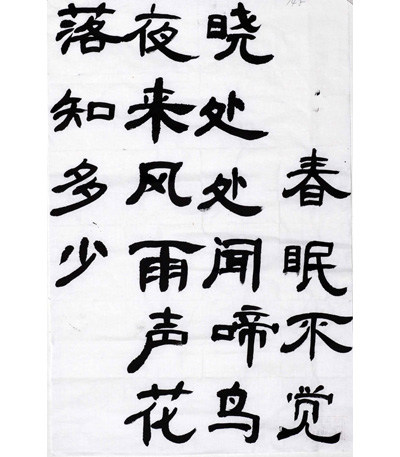 春眠不觉
晓处处闻啼鸟
夜来风雨声花
落知多少